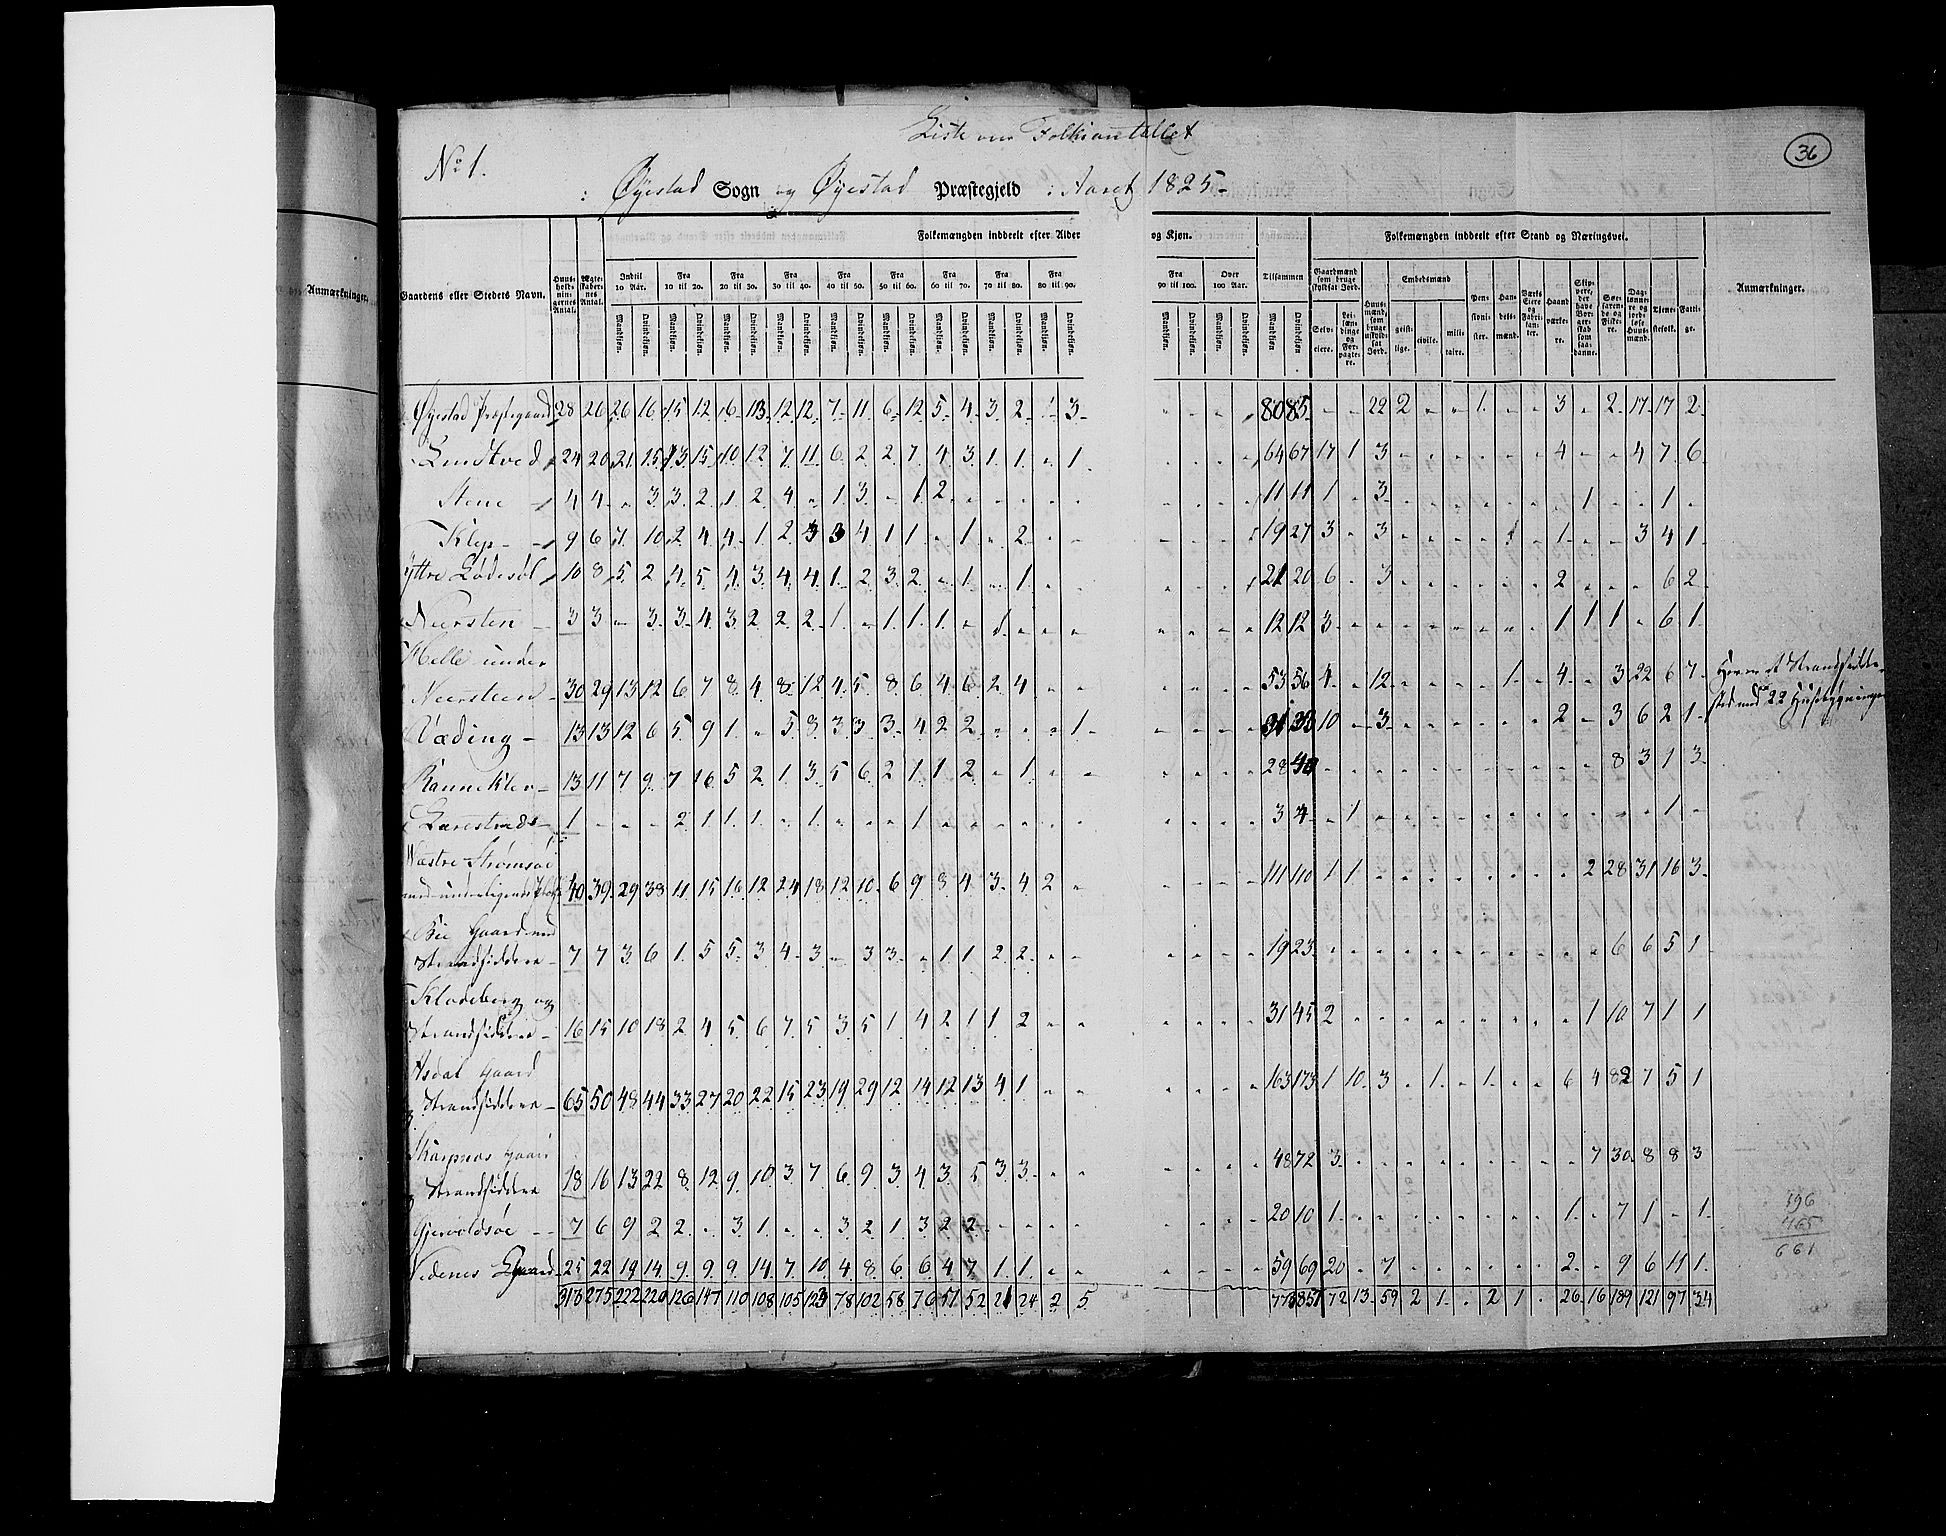 36
Liste over Folkeantallet
No 1.
i Øyestad Sogn og Øyestad Præstegjeld i Aaret 1825.
Anmærkninger.
Folkemængden inddeelt efter Alder og Kjøn. Folkemængden inddeelt efter Stand og Næringsvei.
Gaardens eller Stedets Navn. Huusholdningernes Antal. Ægteskabernes Antal. Indtil 10 Aar. Fra 10 til 20. Fra 20 til 30. Fra 30 til 40. Fra 40 til 50. Fra 50 til 60. Fra 60 til 70. Fra 70 til 80. Fra 80 til 90. Fra 90 til 100. Over 100 Aar. Tilsammen Gaardmænd som bruge skyldsat Jord. Huusmænd, som bruge uskyldsat Jord. Embedsmænd Pensionister. Handelsmænd. Værkseiere og Fabrikanter. Haandværkere. Skippere, der have Borgerskab som saadanne. Søefarende og Fiskere. Daglønnere og jordløse Huusmænd. Tjenestefolk. Fattige. Anmærkninger.
Mandkiøn. Qvindekiøn. Mandkiøn. Qvindekiøn. Mandkiøn. Qvindekiøn. Mandkiøn. Qvindekiøn. Mandkiøn. Qvindekiøn. Mandkiøn. Qvindekiøn. Mandkiøn. Qvindekiøn. Mandkiøn. Qvindekiøn. Mandkiøn. Qvindekiøn. Mandkiøn. Qvindekiøn. Mandkiøn. Qvindekiøn. Mandkiøn Qvindekiøn Selveiere. Leilændinge og Forpagtere. geistlige. civile. militaire.
Øyestad Præstegaard 28 26 26 16 15 12 6 13 12 12 7 11 6 12 5 4 3 2 - 3 - - - - 80 85 - - 22 2 - - 1 - - 3 - 2 17 17 2
24 20 21 15 13 15 10 12 7 11 6 2 2 7 4 3 1 1 - 1 - - - - 64 67 17 1 3 - - - - - - 4 - - 4 7 6
Stene 4 4 - 3 3 2 1 2 4 - 1 3 - 1 2 - - - - - - - - - 11 11 1 - 3 - - - - - - - 1 - - 1 -
9 6 7 10 2 4 4 1 2 3 3 4 1 1 - 1 - 2 - - - - - - 19 27 3 - 3 - - - - 1 - 1 - - 3 4 1
Yttre Lødesøl 10 8 5 2 4 5 4 3 4 4 1 2 3 2 - 1 - 1 - - - - - - 21 20 6 - 3 - - - - - - 2 - - - 6 2
Neersten 3 3 - 3 3 4 3 2 2 2 1 - 1 1 1 - 1 - - - - - - - 12 12 3 - - - - - - - - 1 1 1 - 6 1
Helle under
Neersteen 30 29 13 12 6 7 8 4 8 12 4 5 8 6 4 6 2 4 - - - - - - 53 56 4 - 12 - - - - 1 - 4 - 3 22 6 7
Væding 13 13 12 6 5 9 1 - 5 8 3 3 3 4 2 2 - - - 1 - - - - 31 33 10 - 3 - - - - - - 2 - 3 6 2 1
Ranneklev 13 11 7 9 7 16 5 2 1 3 5 6 2 1 1 2 - 1 - - - - - - 28 40 - - - - - - - - - - - 8 3 1 3
1 - - - 2 1 1 1 - 1 - - - 1 - - - - - - - - - - 3 4 - 1 - - - - - - - - - - - 1 -
Wæstre Strømsøe
med underligende Pladse 40 39 29 38 11 15 16 12 24 18 12 10 6 9 8 4 3 4 2 - - - - - 111 110 1 1 - - - - - - - - 2 28 31 16 3
Bie Gaard med
Strandsiddere 7 7 3 6 1 5 5 3 4 3 - 3 3 - 1 1 2 2 - - - - - - 19 23 - - - - - - - - - - - 6 6 5 1
Klodeberg og
Strandsiddere 16 15 10 18 2 4 5 6 7 5 3 5 1 4 2 1 1 2 - - - - - - 31 45 2 - - - - - - - - - 1 10 7 1 1
Asdal Gaard
Strandsiddere 65 50 48 44 33 27 20 22 15 23 19 29 12 14 12 13 4 1 - - - - - - 163 173 1 10 3 - 1 - 1 - - 6 4 82 7 5 1
Skarpnæs Gaard
Strandsiddere 18 16 13 22 8 12 9 10 3 7 6 9 3 4 3 5 3 3 - - 48 72 3 - - - - - - - - - 7 30 8 8 3
Gjervoldsøe 7 6 9 2 2 - 3 1 - - 3 2 1 3 2 2 - - - - - - - - 20 10 1 - - - - - - - - 1 - 7 1 - 1
Nedenes Gaard 25 22 19 14 9 9 9 14 7 10 4 8 6 6 4 7 1 1 - - - - - - 59 69 20 - 7 - - - - - - 2 - 9 6 11 1
313 275 222 220 126 147 110 108 105 123 78 102 58 76 51 52 21 24 2 5 773 857 72 13 59 2 1 - 2 1 - 26 16 189 121 97 34
Herav et Strandsidder-
sted med 22 Huusbygninger
196
465
661